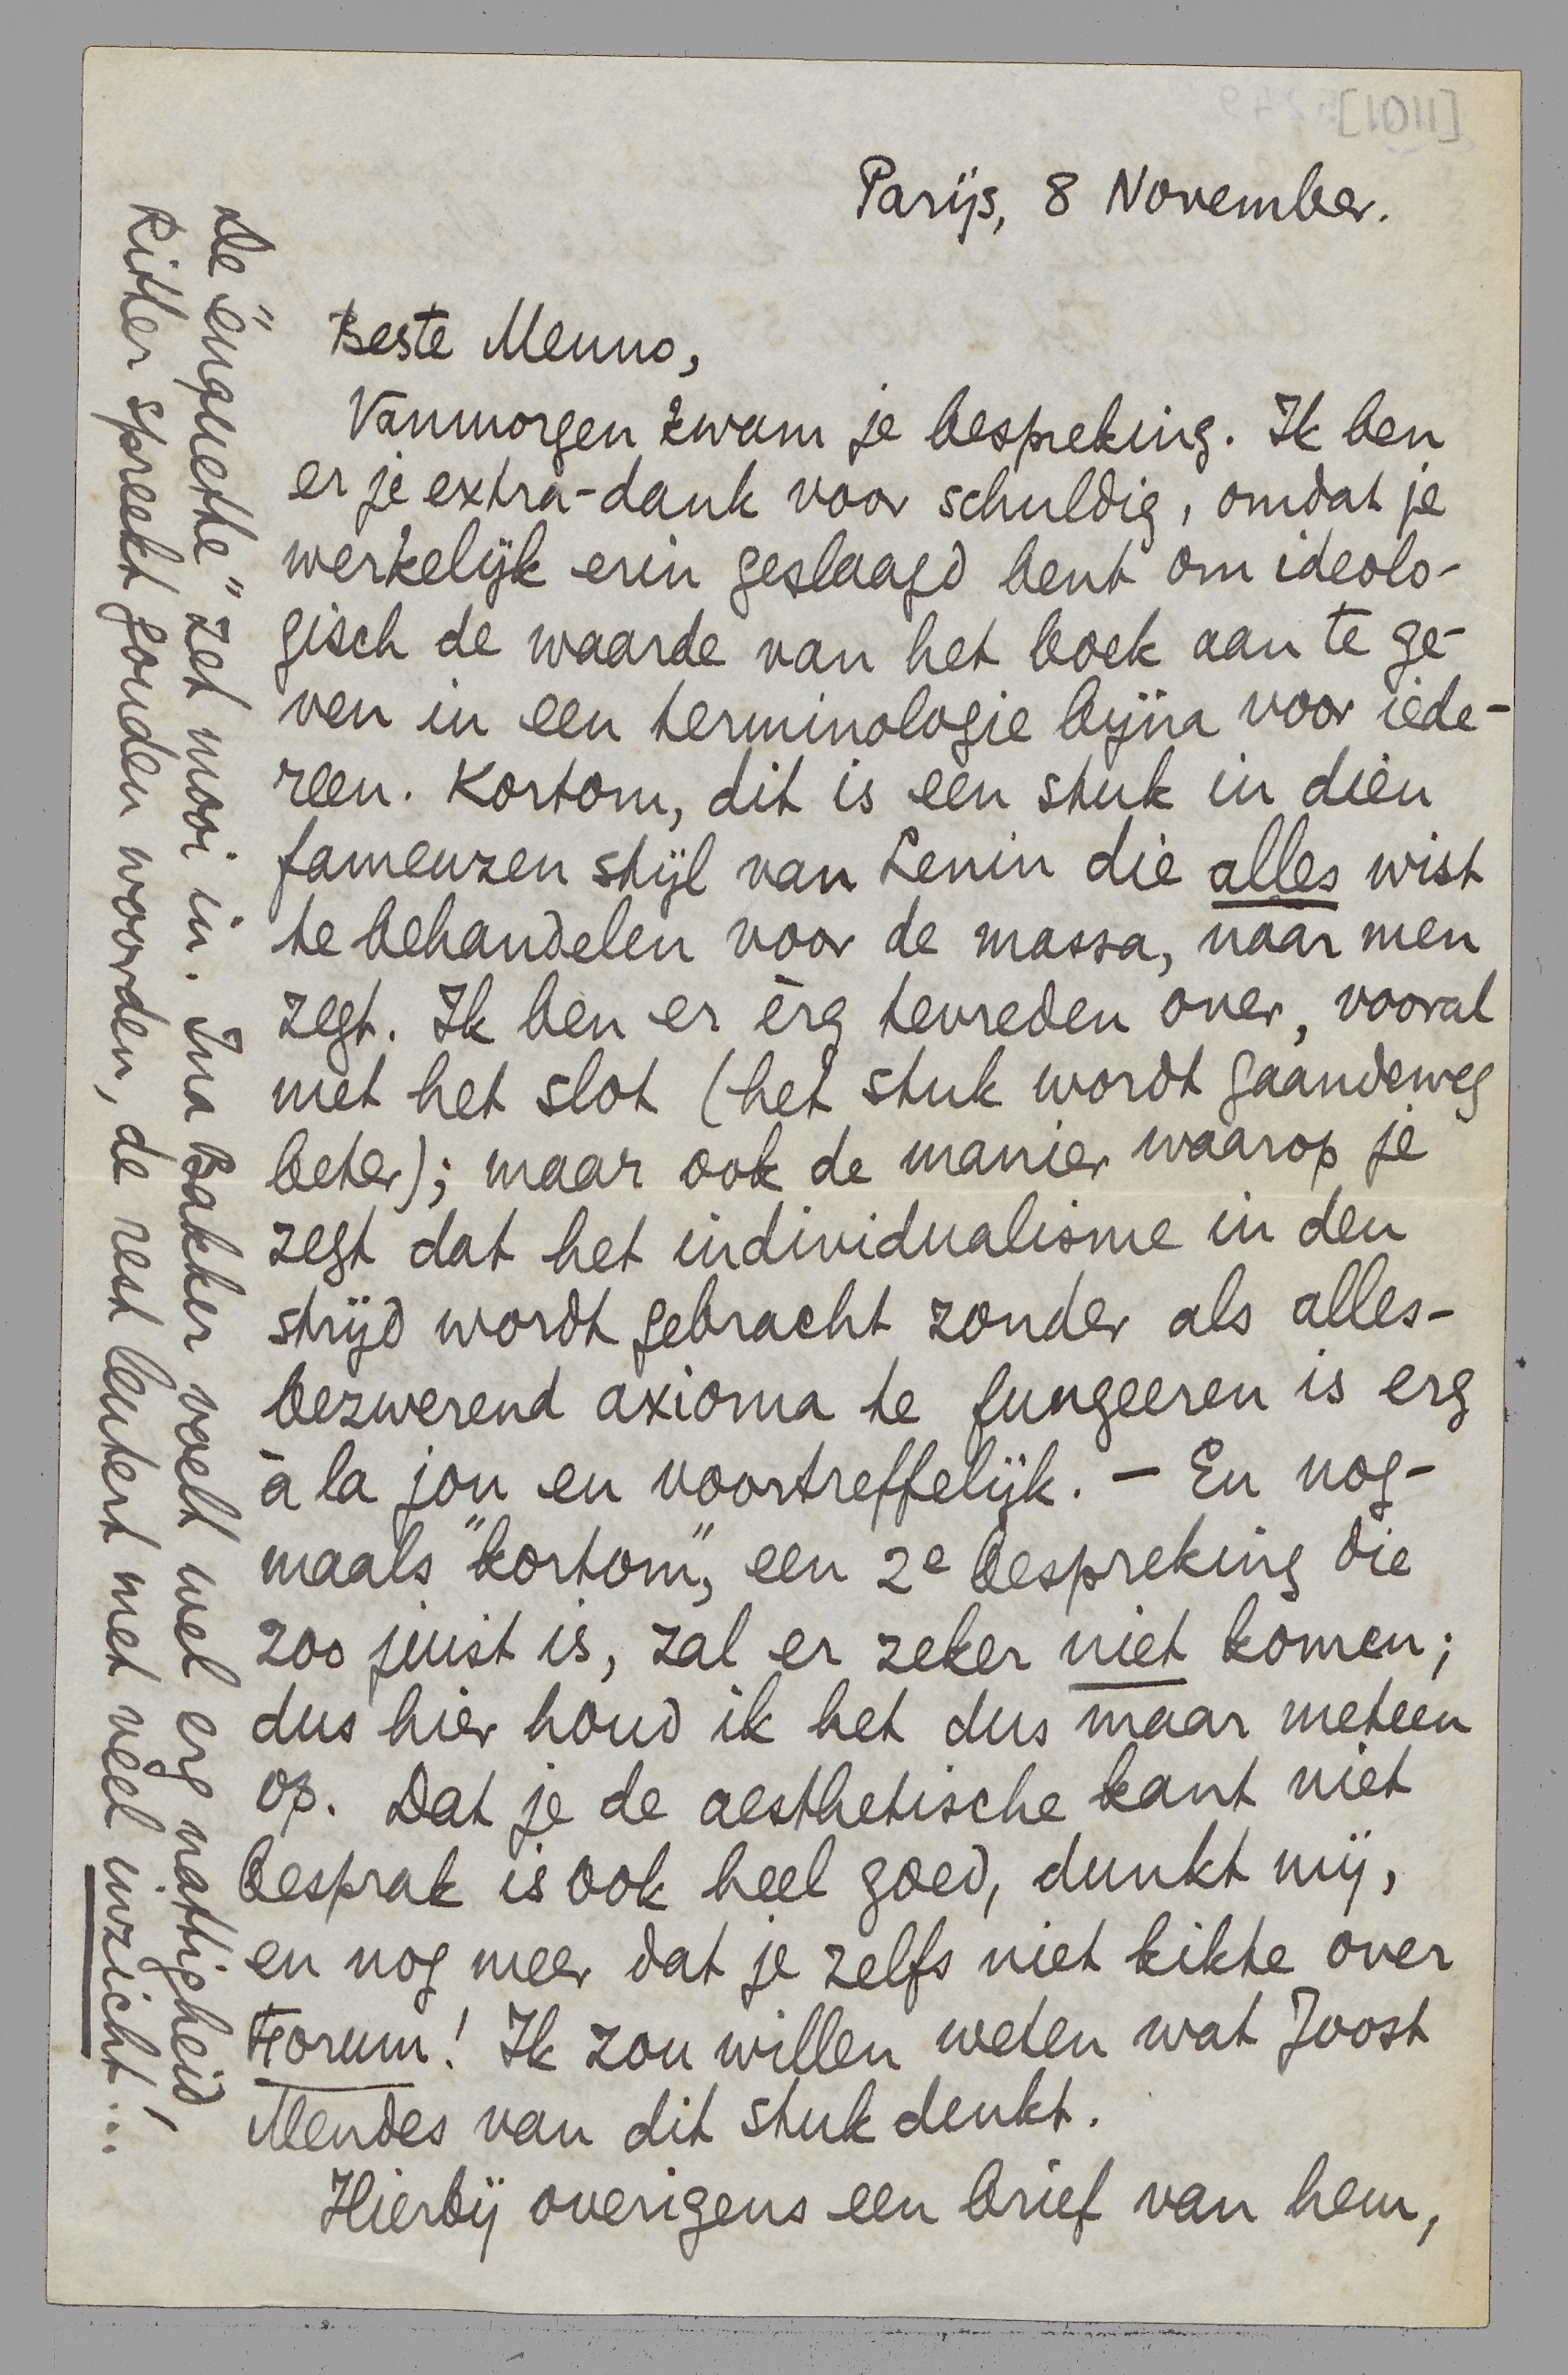 Parijs, 8 November.
Beste Menno,
Vanmorgen kwam je bespreking. Ik ben
er je extra-dank voor schuldig, omdat je
werkelijk erin geslaagd bent om ideolo-
gisch de waarde van het boek aan te ge-
ven in een terminologie bijna voor iede-
reen. Kortom, dit is een stuk in dien
fameuzen stijl van Lenin die alles wist
te behandelen voor de massa, naar men
zegt. Ik ben er èrg tevreden over, vooral
met het slot (het stuk wordt gaandeweg
beter); maar ook de manier waarop je
zegt dat het individualisme in den
strijd wordt gebracht zonder als alles-
bezwerend axioma te fungeeren is erg
à la jou en voortreffelijk. — En nog-
maals "kortom", een 2e bespreking die
zoo juist is, zal er zeker niet komen;
dus hier houd ik het dus maar meteen
op. Dat je de aesthetische kant niet
besprak is ook heel goed, dunkt mij,
en nog meer dat je zelfs niet kikte over
Forum! Ik zou willen weten wat Joost
Mendes van dit stuk denkt.
Hierbij overigens een brief van hem,
De "enquethe" zet mooi in. Ina Bakker voelt wel erg nattigheid!
Ritter spreekt gouden woorden, de rest leutert met veel inzicht...
[1101]